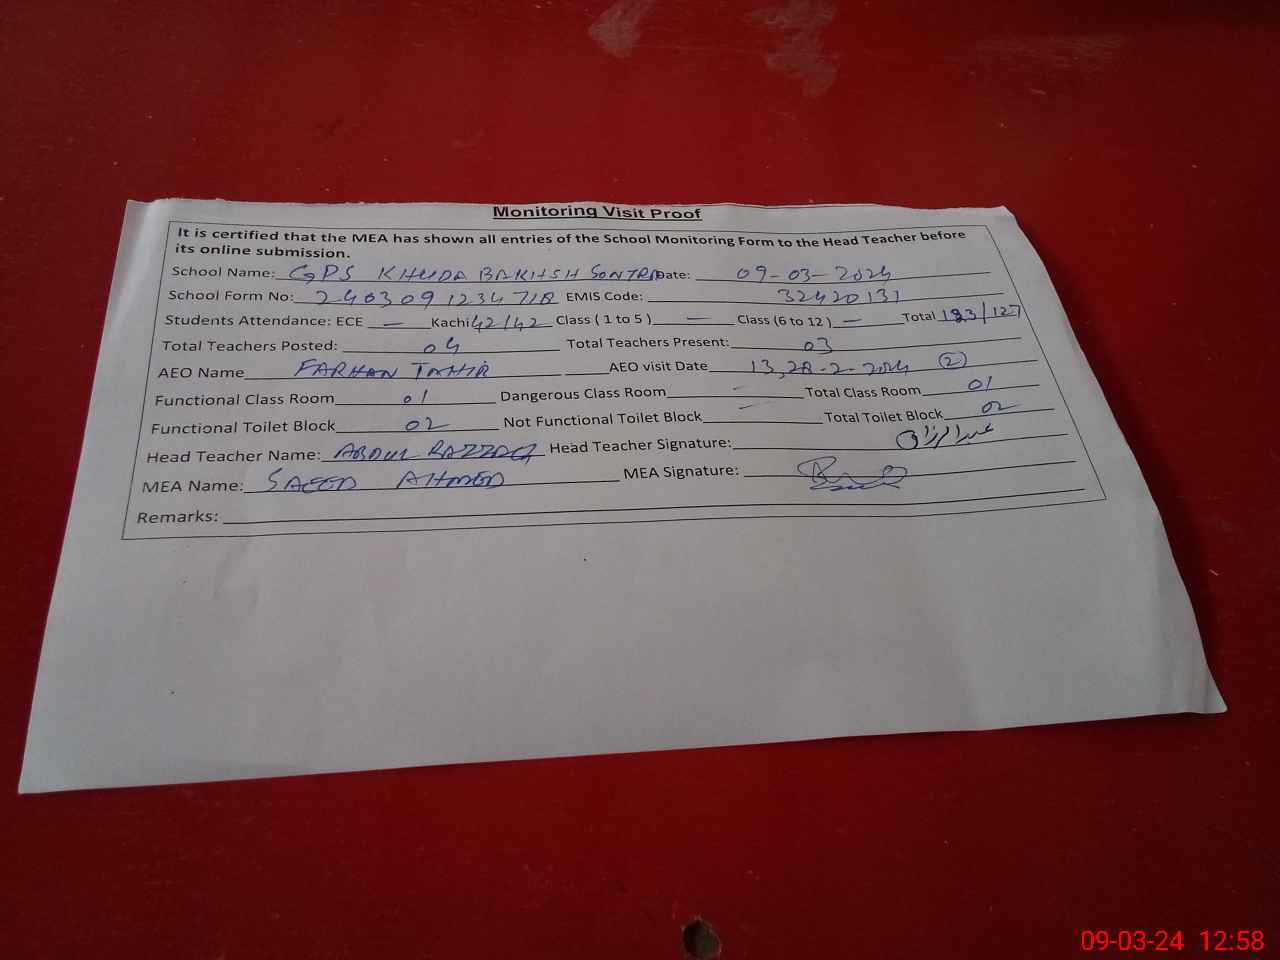 Monitoring Visit Proof
It is certified that the MEA has shown all entries of the School Monitoring Form to the Head Teacher before
its online submission.
School Name: GPS KHUDA BAKHSH SONTRA Date: 09-03-2024
School Form No: 240309123471R EMIS Code: 32420131
Students Attendance: ECE — Kachi 42/42 Class ( 1 to 5 ) — Class (6 to 12 ) — Total /127
Total Teachers Posted: 04 Total Teachers Present: 03
AEO Name FARHAN TAHIR AEO visit Date 13,28-2-2024 (2)
Functional Class Room 01 Dangerous Class Room — Total Class Room 01
Functional Toilet Block 02 Not Functional Toilet Block — Total Toilet Block 02
Head Teacher Name: ABDUL RAZZAQ Head Teacher Signature: عبدالرزاق
MEA Name: SAEED AHMED MEA Signature:
Remarks:
09-03-24 12:58